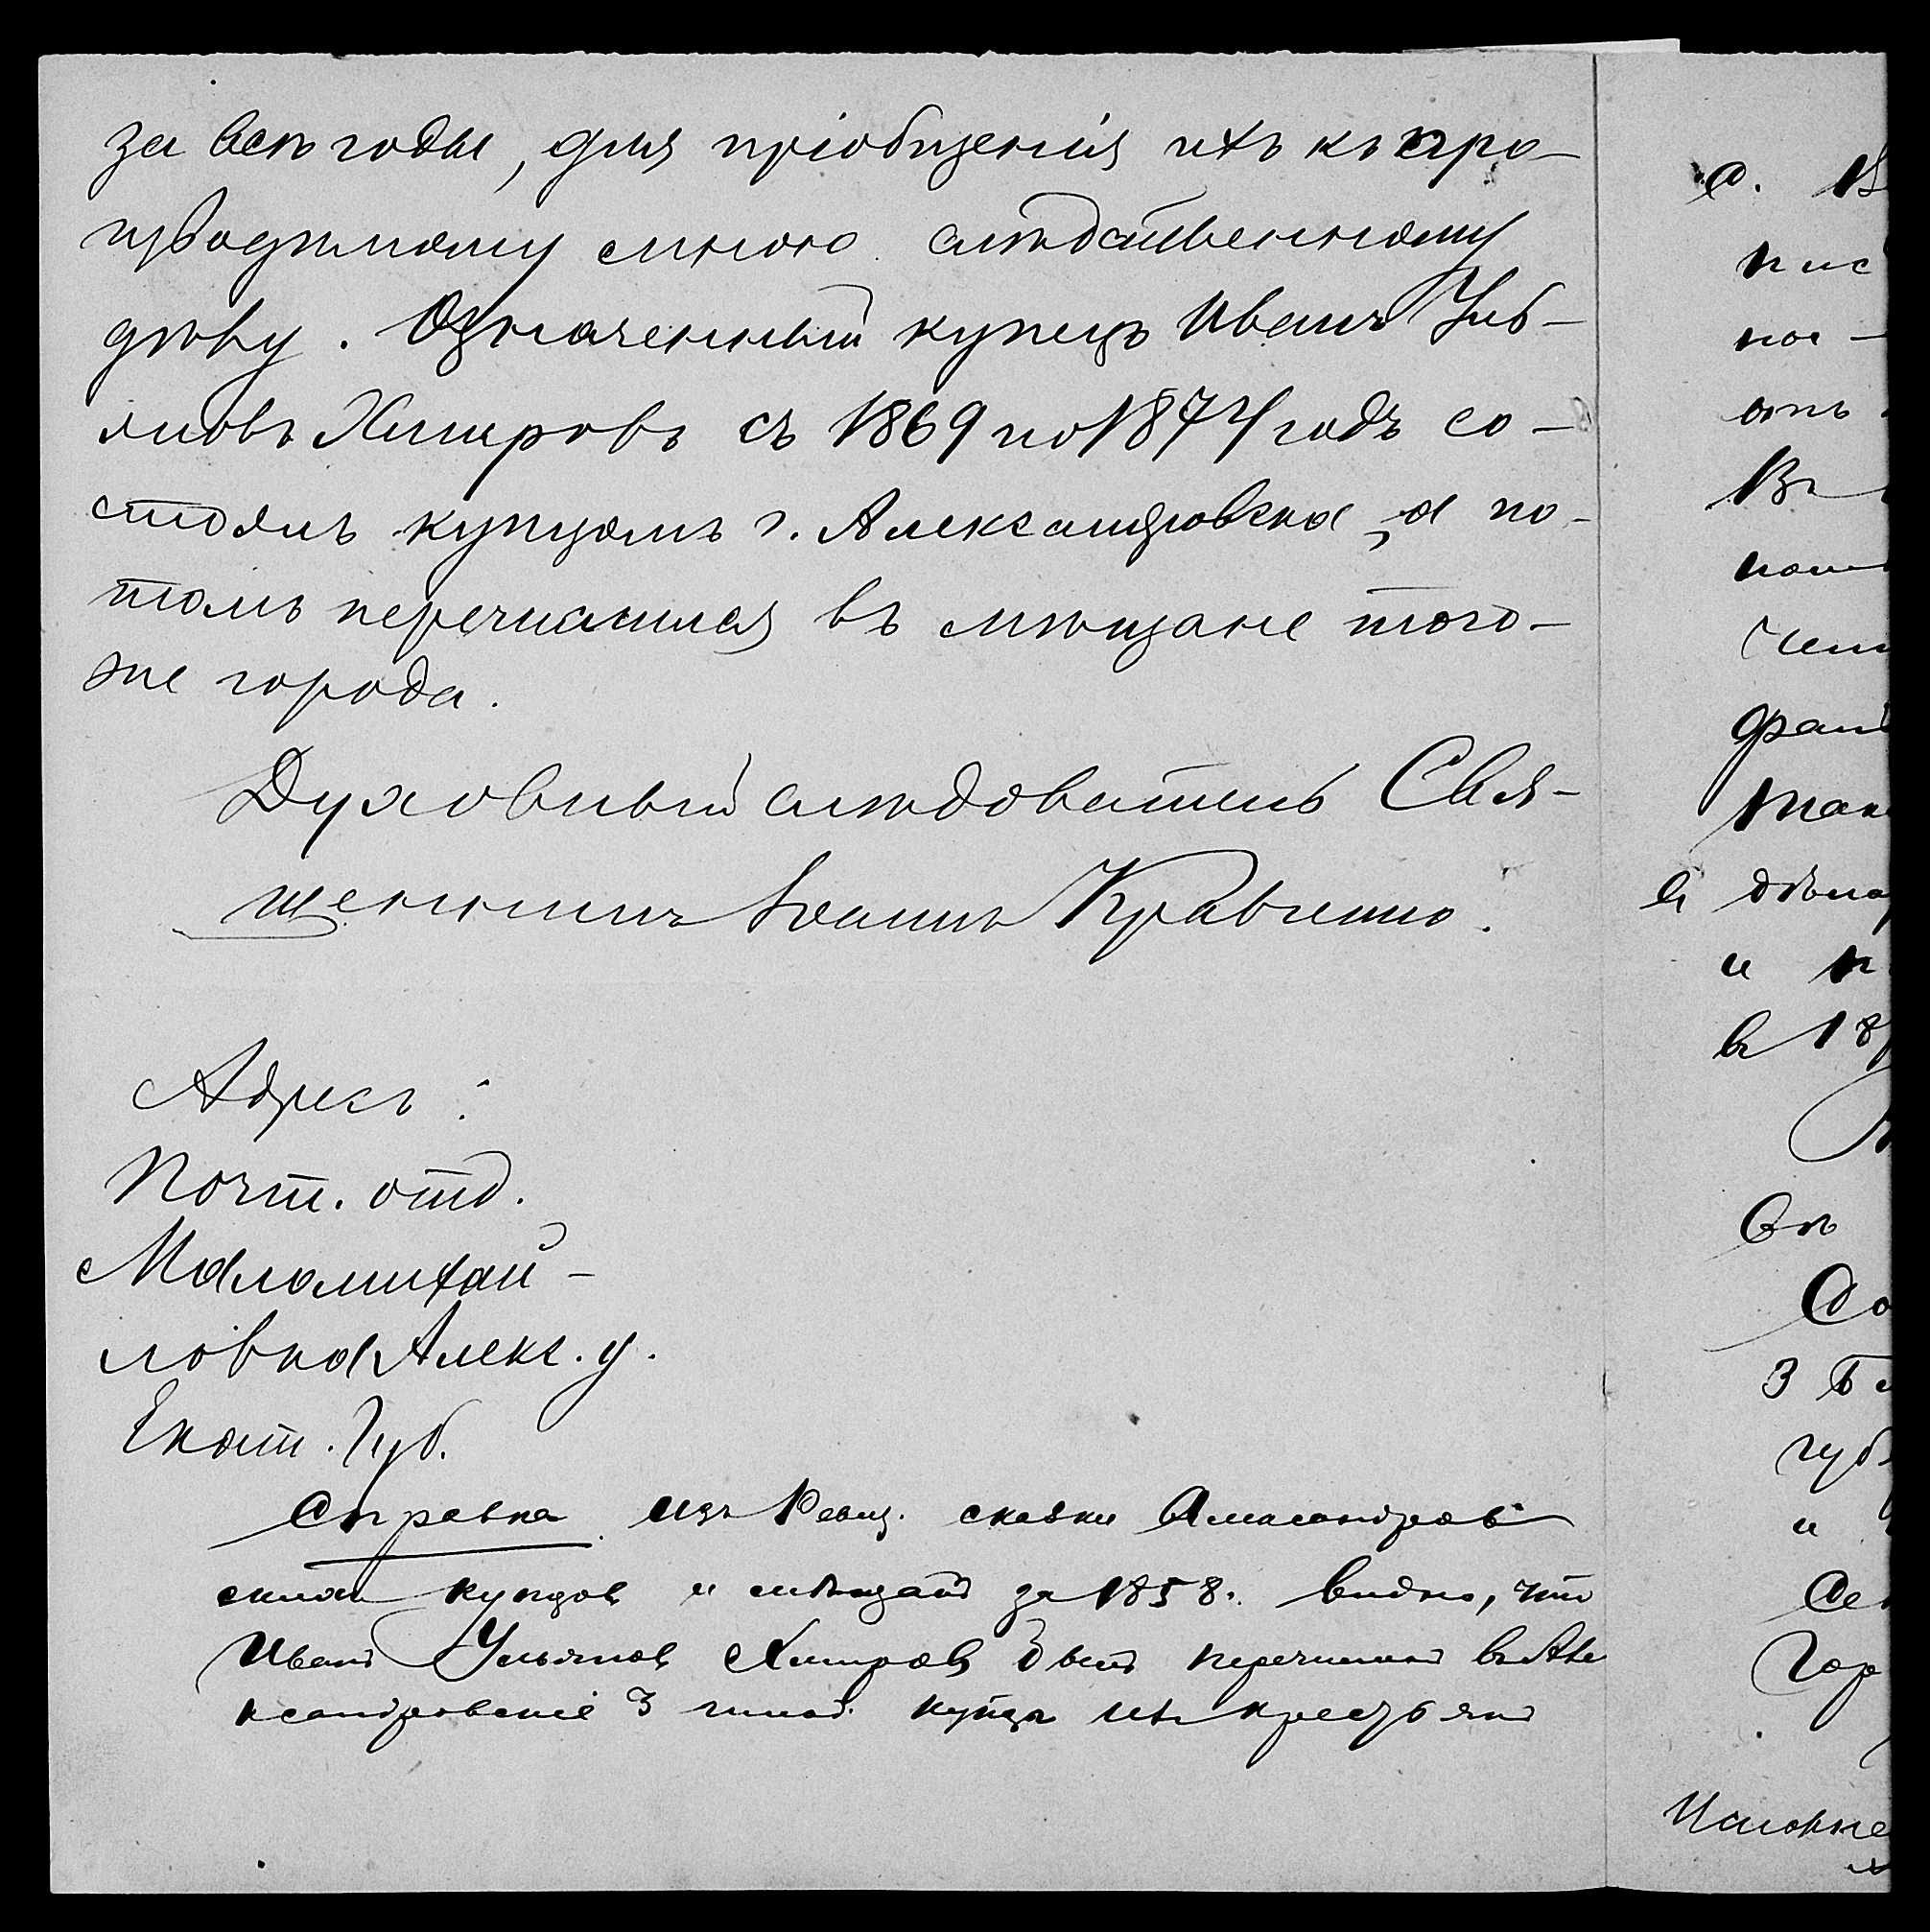 за всѣ годы, для пріобщенія ихъ къ про-
изводимому мною слѣдственному
дѣлу. Означенный купецъ Иванъ Уль-
яновъ Хитровъ съ 1869 по 1874 годъ со-
стоялъ купцомъ г. Александровска, а по-
томъ перечислился въ мѣщане того-
же города.
Духовный слѣдователь Свя-
щенникъ Іоаннъ Кравченко.
Адресъ:
Почт. отд.
Маломихай-
ловка Алекс. у.
Екат. Губ.
Справка изъ Ревиз. сказки Александров
скихъ купцовъ и мѣщанъ за 1858. видно, что
Иванъ Ульяновъ Хитровъ былъ перечисленъ въ Але
ксандровскіе 3 гильд. купцы изъ крестьянъ
а. В
пис
ное -
отъ
Въ
чет
так
и п
въ 18
Съ
3
губ
и
Гор